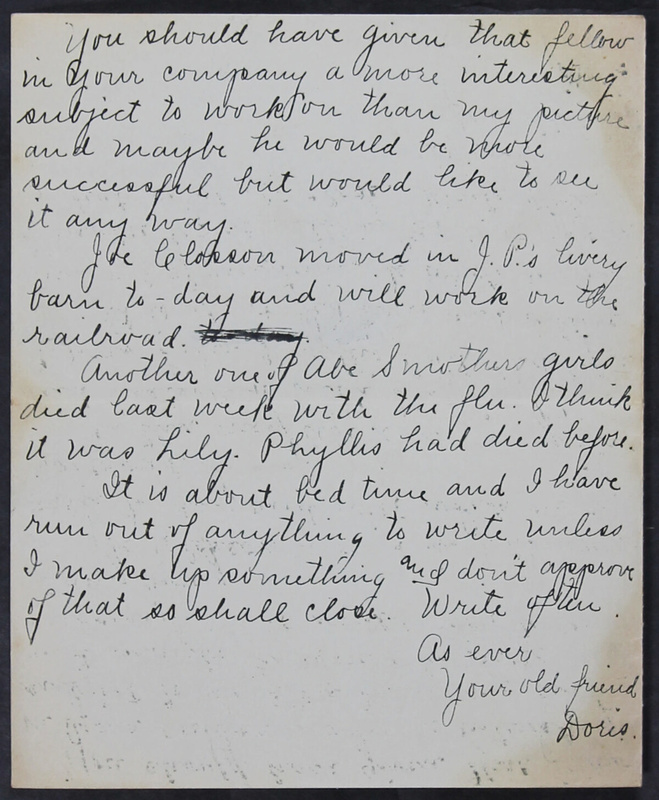 You should have given that fellow
in your company a more interesting
subject to work on than my picture
and maybe he would be more
successful but would like to see
it any way.
Joe Closson moved in J. P.'s livery
barn to-day and will work on the
railroad.
Another one of Abe Smothers girls
died last week with the flu. I think
it was Lily. Phyllis had died before.
It is about bed time and I have
run out of anything to write unless
I make up something and I don't approve
of that so shall close. Write often.
As ever
Your old friend
Doris.